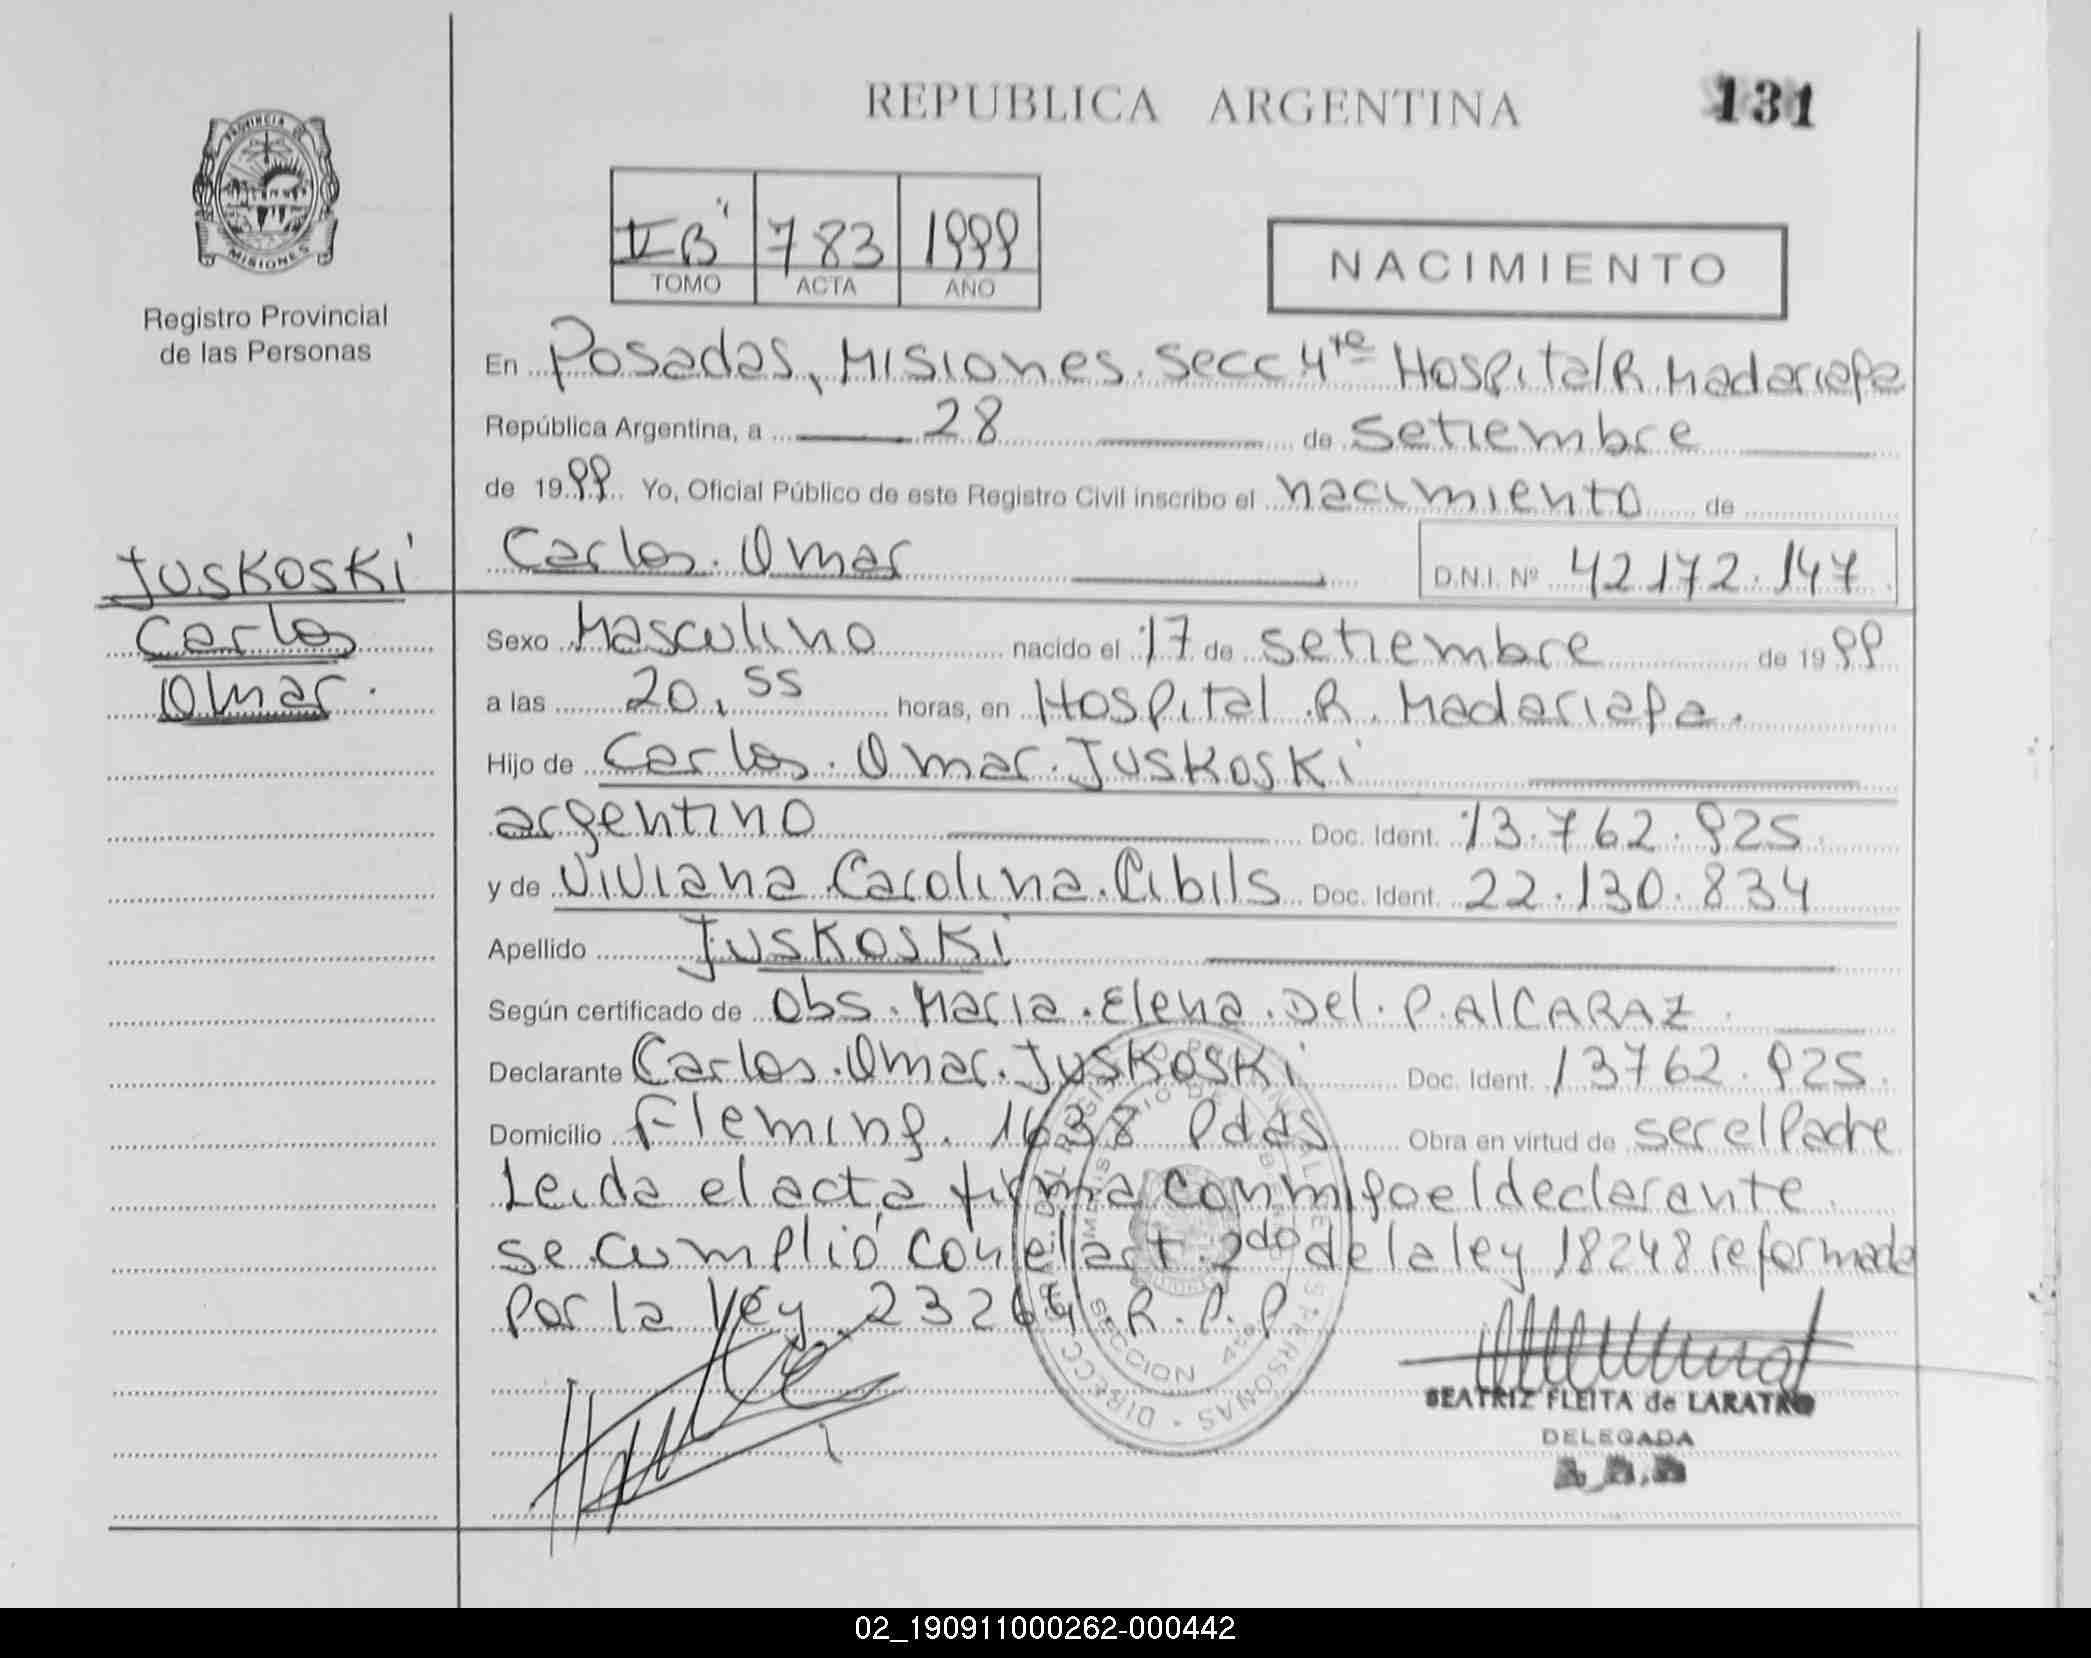 REPUBLICA ARGENTINA
131
PROVINCIA DE
MISIONES
Registro Provincial
de las Personas
II B" 783 1999
TOMO ACTA AÑO
NACIMIENTO
En Posadas, Misiones. Secc 4ta Hospital R. Madariaga
República Argentina, a 28 de Setiembre
de 1999 Yo, Oficial Público de este Registro Civil inscribo el nacimiento de
Carlos. Omar
D.N.I. Nº 42172.147
Juskoski
Carlos
Omar.
Sexo Masculino nacido el 17 de Setiembre de 1999
a las 20,55 horas, en Hospital R. Madariaga.
Hijo de Carlos. Omar. Juskoski
argentino Doc. Ident. 13.762.925.
y de Viviana Carolina. Cibils Doc. Ident. 22.130.834
Apellido Juskoski
Según certificado de Obs. Maria. Elena. Del. P. AlCARAZ.
Declarante Carlos. Omar. Juskoski Doc. Ident. 13762.925.
Domicilio Fleming. 1638 Pdas Obra en virtud de ser el Padre
Leida el acta firma conmigo el declarante.
se cumplió con el art. 2do de la ley 18248 reformada
Por la ley 23264. R.P.P
SECCION 4ta
BEATRIZ FLEITA de LARATRO
DELEGADA
02_190911000262-000442